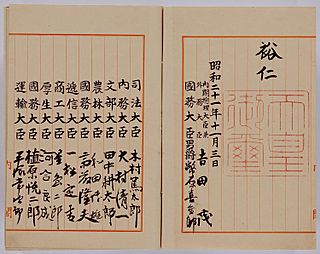 裕仁
天皇御璽
昭和二十一年十一月三日
内閣総理大臣兼
外務大臣 吉田茂
国務大臣 男爵幣原喜重郎
司法大臣 木村篤太郎
内務大臣 大村清一
文部大臣 田中耕太郎
農林大臣 和田博雄
国務大臣 斎藤隆夫
逓信大臣 一松定吉
商工大臣 星島二郎
厚生大臣 河合良成
国務大臣 植原悦二郎
運輸大臣 平塚常次郎